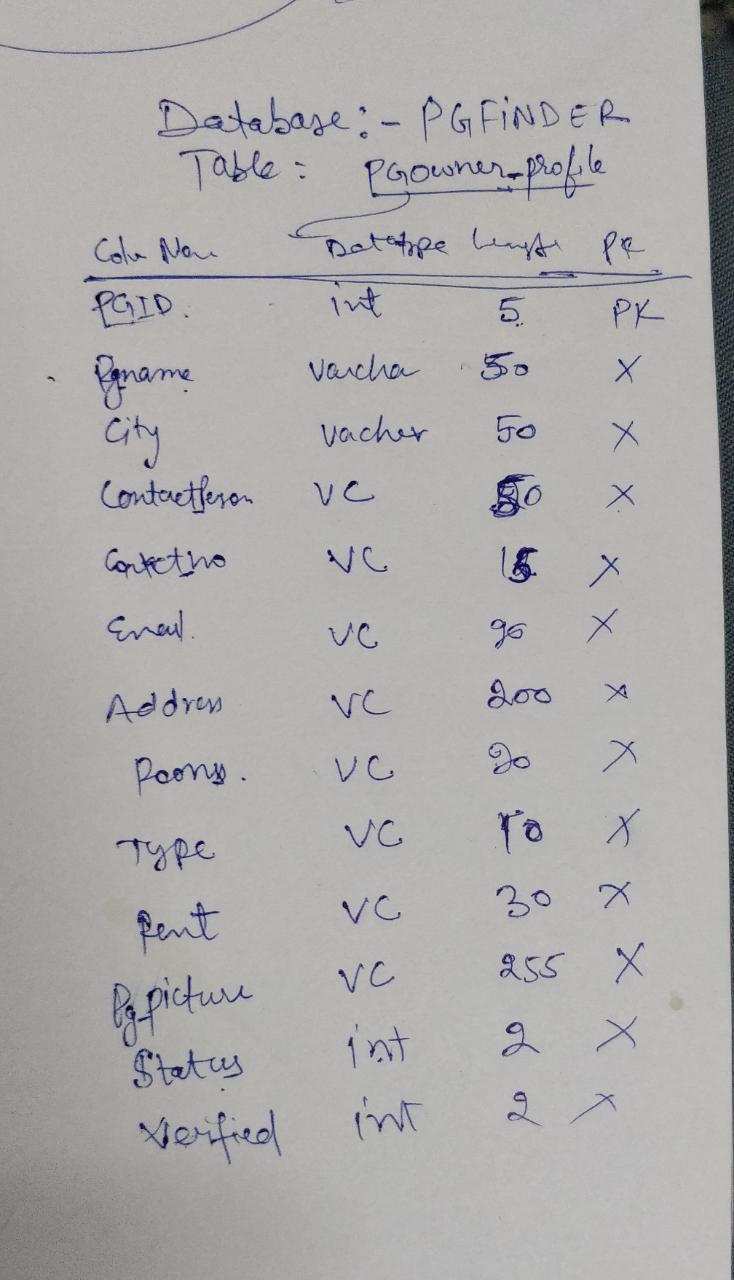 Database :- PGFINDER
Table : PGowner_profile
Datatype Length PK
PGID. int 5 PK
Pgname Varcha 50 X
City Vacher 50 X
ContactPerson VC 50 X
VC 15 X
Email. VC X
Address VC 200 X
Rooms. VC X
Type VC 10 X
Rent VC 30 X
Pg_picture VC 255 X
Status int 2 X
Verified int 2 X